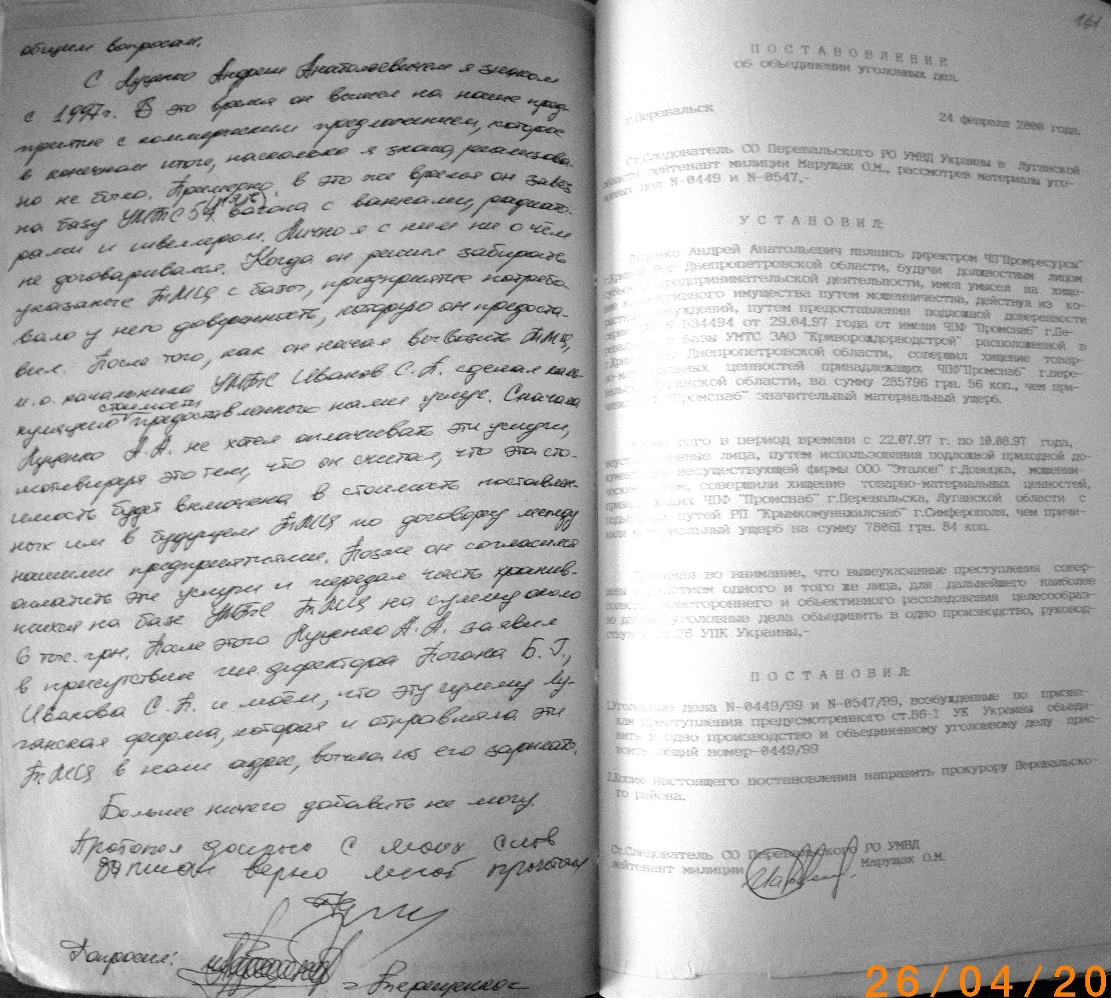 общим вопросам.
С Луценко Андреем Анатолиевичем я знаком
с 1997г. В это время он вышел на наше пред-
приятие с коммерческим предложением, которое
в конечном итоге, насколько я знаю, реализова-
но не было. Примерно в это же время он завез
на базу УМТС 54 вагона с ваннами, радиато-
рами и швеллером. Лично я с ним ни о чём
не договаривался. Когда он решил забирать
указаные ТМЦ с базы, предприятие потребо-
вало у него доверенность, которую он предоста-
вил. После того, как он начал вывозить ТМЦ,
и.о. начальника УМТС Иванов С.А. сделал каль-
куляцию стоимости предоставленных нами услуг. Сначала
Луценко А.А. не хотел оплачивать эти услуги,
мотивируя это тем, что он считал, что эта сто-
имость будет включена в стоимость поставлен-
ных им в будущем ТМЦ по договору между
нашими предприятиями. Позже он согласился
оплатить эти услуги и передал часть хранив-
шихся на базе УМТС ТМЦ на сумму около
6 тыс. грн. После этого Луценко А.А. заявил
в присутствии ген.директора Когана Б.Г.,
Иванова С.А. и моём, что эту сумму Лу-
ганская фирма, которая и отправляла эти
ТМЦ в наш адрес, вычла из его зарплаты.
Больше ничего добавить не могу.
Протокол допроса с моих слов
записан верно мной прочитан
Допросил:
161
ПОСТАНОВЛЕНИЕ
об объединении уголовных дел.
г.Перевальск
24 февраля 2000 года.
Ст.Следователь СО Перевальского РО УМВД Украины в Луганской
области лейтенант милиции Марущак О.М., рассмотрев материалы уго-
ловных дел N-0449 и N-0547,-
УСТАНОВИЛ:
Луценко Андрей Анатольевич являясь директором ЧП"Промресурсы"
г.Кривой Рог Днепропетровской области, будучи должностным лицом
субъекта предпринимательской деятельности, имея умысел на хище-
ние коллективного имущества путем мошенничества, действуя из ко-
рыстных побуждений, путем предоставления подложной доверенности
N-534494 от 29.04.97 года от имени ЧПФ "Промснаб" г.Пе-
ревальска с базы УМТС ЗАО "Криворождорводстрой" расположенной в
г.Кривой Рог Днепропетровской области, совершил хищение товар-
но-материальных ценностей принадлежащих ЧПФ"Промснаб" г.Пере-
вальска Луганской области, на сумму 285796 грн. 56 коп., чем при-
чинил ЧПФ "Промснаб" значительный материальный ущерб.
Кроме того в период времени с 22.07.97 г. по 10.08.97 года,
неустановленные лица, путем использования подложной приходной до-
кументации несуществующей фирмы ООО "Эталон" г.Донецка, мошенни-
ческим путем, совершили хищение товарно-материальных ценностей,
принадлежащих ЧПФ "Промснаб" г.Перевальска, Луганской области с
подъездных путей РП "Крымкоммунжилснаб" г.Симферополя, чем причи-
нили материальный ущерб на сумму 78661 грн. 84 коп.
Принимая во внимание, что вышеуказанные преступления совер-
шены с участием одного и того же лица, для дальнейшего наиболее
полного, всестороннего и объективного расследования целесообраз-
но данные уголовные дела объединить в одно производство, руковод-
ствуясь ст.26 УПК Украины,-
ПОСТАНОВИЛ:
1.Уголовные дела N-0449/99 и N-0547/99, возбужденные по призна-
кам преступления предусмотренного ст.86-1 УК Украины объеди-
нить в одно производство и объединенному уголовному делу прис-
воить общий номер-0449/99
2.Копию настоящего постановления направить прокурору Перевальско-
го района.
Ст.Следователь СО Перевальского РО УМВД
лейтенант милиции Марущак О.М.
26/04/20